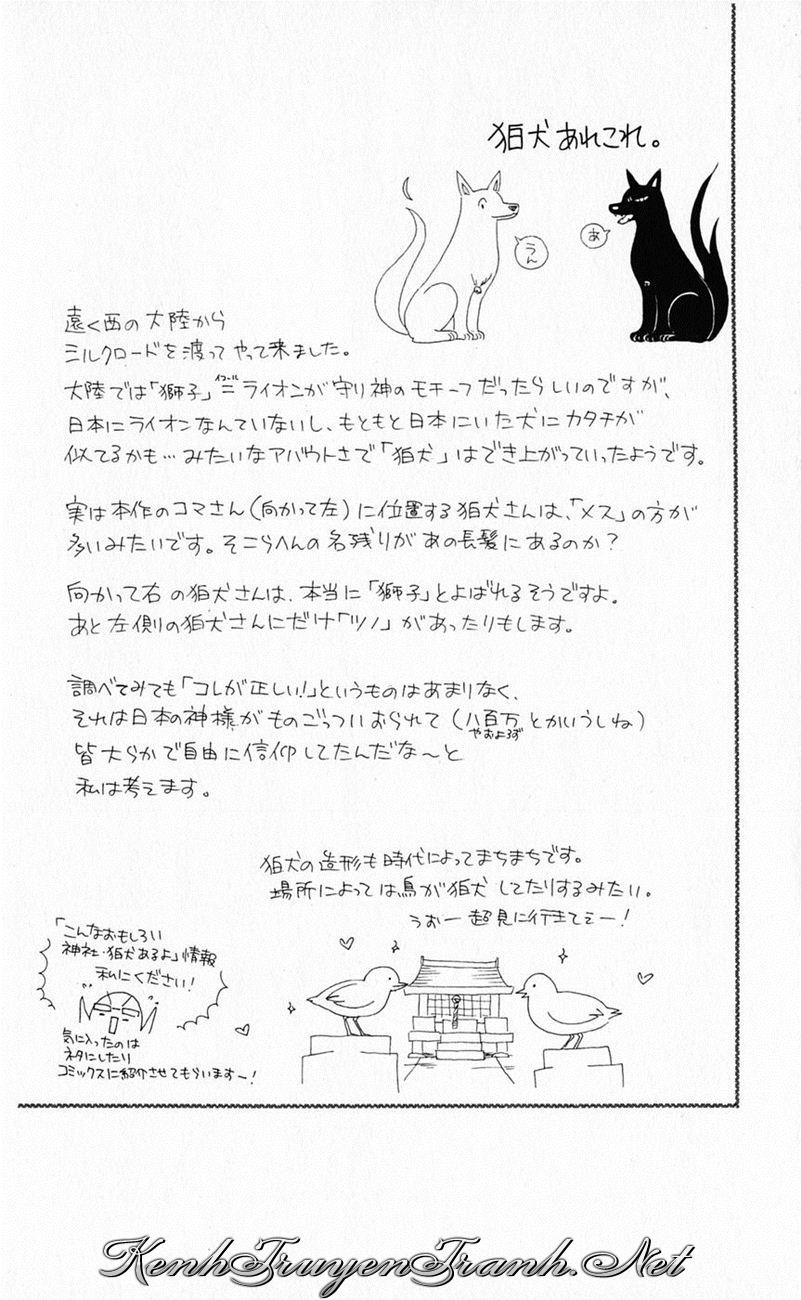 狛犬あれこれ。
うん
あ
遠く西の大陸から
シルクロードを渡ってやって来ました。
大陸では「獅子」イコール=ライオンが守り神のモチーフだったらしいのですが、
日本にライオンなんていないし、もともと日本にいた犬にカタチが
似てるかも…みたいなアバウトさで「狛犬」はでき上がっていったようです。
実は本作のコマさん(向かって左)に位置する狛犬さんは、「メス」の方が
多いみたいです。そこらへんの名残りがあの長髪にあるのか?
向かって右の狛犬さんは、本当に「獅子」とよばれるそうですよ。
あと左側の狛犬さんにだけ「ツノ」があったりもします。
調べてみても「コレが正しい!」というものはあまりなく、
それは日本の神様がものごっついおられて(八百万とかいうしね)
やおよろず
皆大らかで自由に信仰してたんだな〜と
私は考えます。
狛犬の造形も時代によってまちまちです。
場所によっては鳥が狛犬してたりするみたい。
うおー超見に行きてぇー!
「こんなおもしろい
神社・狛犬あるよ」情報
私にください!
気に入ったのは
ネタにしたり
コミックスに紹介させてもらいます〜!
KenhTruyenTranh.Net